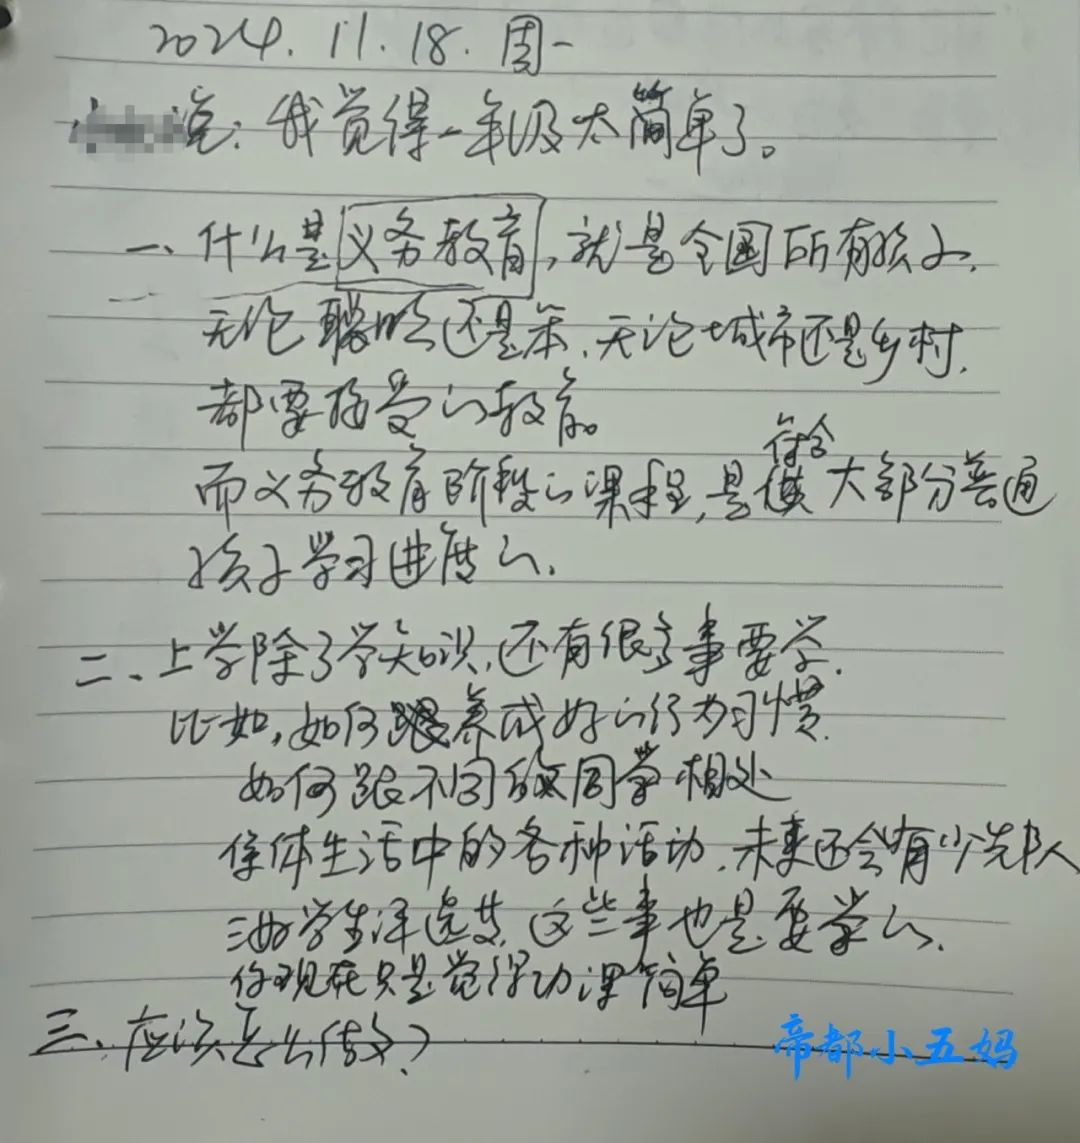 2024.11.18.周一
说:我觉得一年级太简单了。
一、什么是义务教育,就是全国所有孩子,
无论聪明还是笨,无论城市还是乡村,
都要接受的教育。
符合
而义务教育阶段的课程,是 大部分普通
孩子学习进度的.
二、上学除了学知识,还有很多事要学.
比如,如何 养成好的行为习惯.
如何跟不同的同学相处
集体生活中的各种活动,未来还会有少先队
三好学生评选等,这些事也是要学的.
你现在只是觉得功课简单
三、应该怎么做?
帝都小五妈